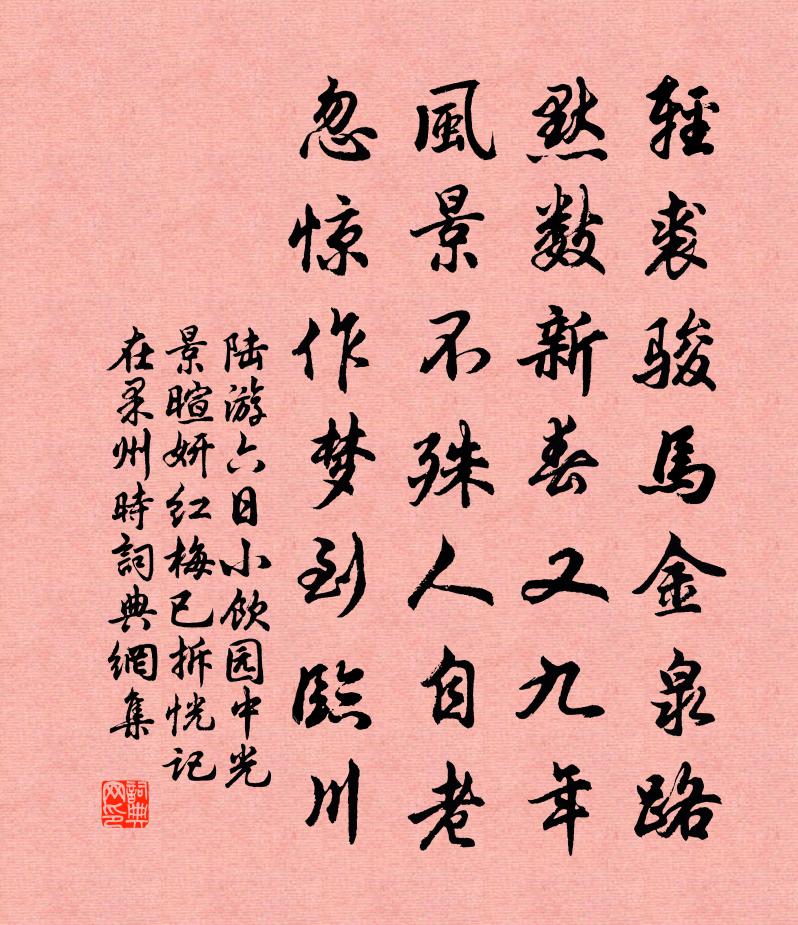 輕裘駿馬金泉路
默數新春又九年
風景不殊人自老
忽惊作梦到臨川
陆游六日小飲园中光
景暄妍红梅已拆恍记
在果州時詞典網集
詞典网印